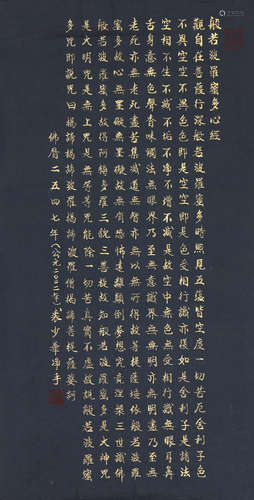 般若波羅蜜多心經
觀自在菩薩行深般若波羅蜜多時照見五蘊皆空度一切苦厄舍利子色
不異空空不異色色即是空空即是色受想行識亦復如是舍利子是諸法
空相不生不滅不垢不淨不增不減是故空中無色無受想行識無眼耳鼻
舌身意無色聲香味觸法無眼界乃至無意識界無無明亦無無明盡乃至無
老死亦無老死盡無苦集滅道無智亦無得以無所得故菩提薩埵依般若波羅
蜜多故心無罣礙無罣礙故無有恐怖遠離顛倒夢想究竟涅槃三世諸佛
依般若波羅蜜多故得阿耨多羅三藐三菩提故知般若波羅蜜多是大神咒
是大明咒是無上咒是無等等咒能除一切苦真實不虛故說般若波羅蜜
多咒即說咒曰揭諦揭諦波羅揭諦波羅僧揭諦菩提薩婆訶
佛曆二五四七年(公元二00二年)裘少華淨手